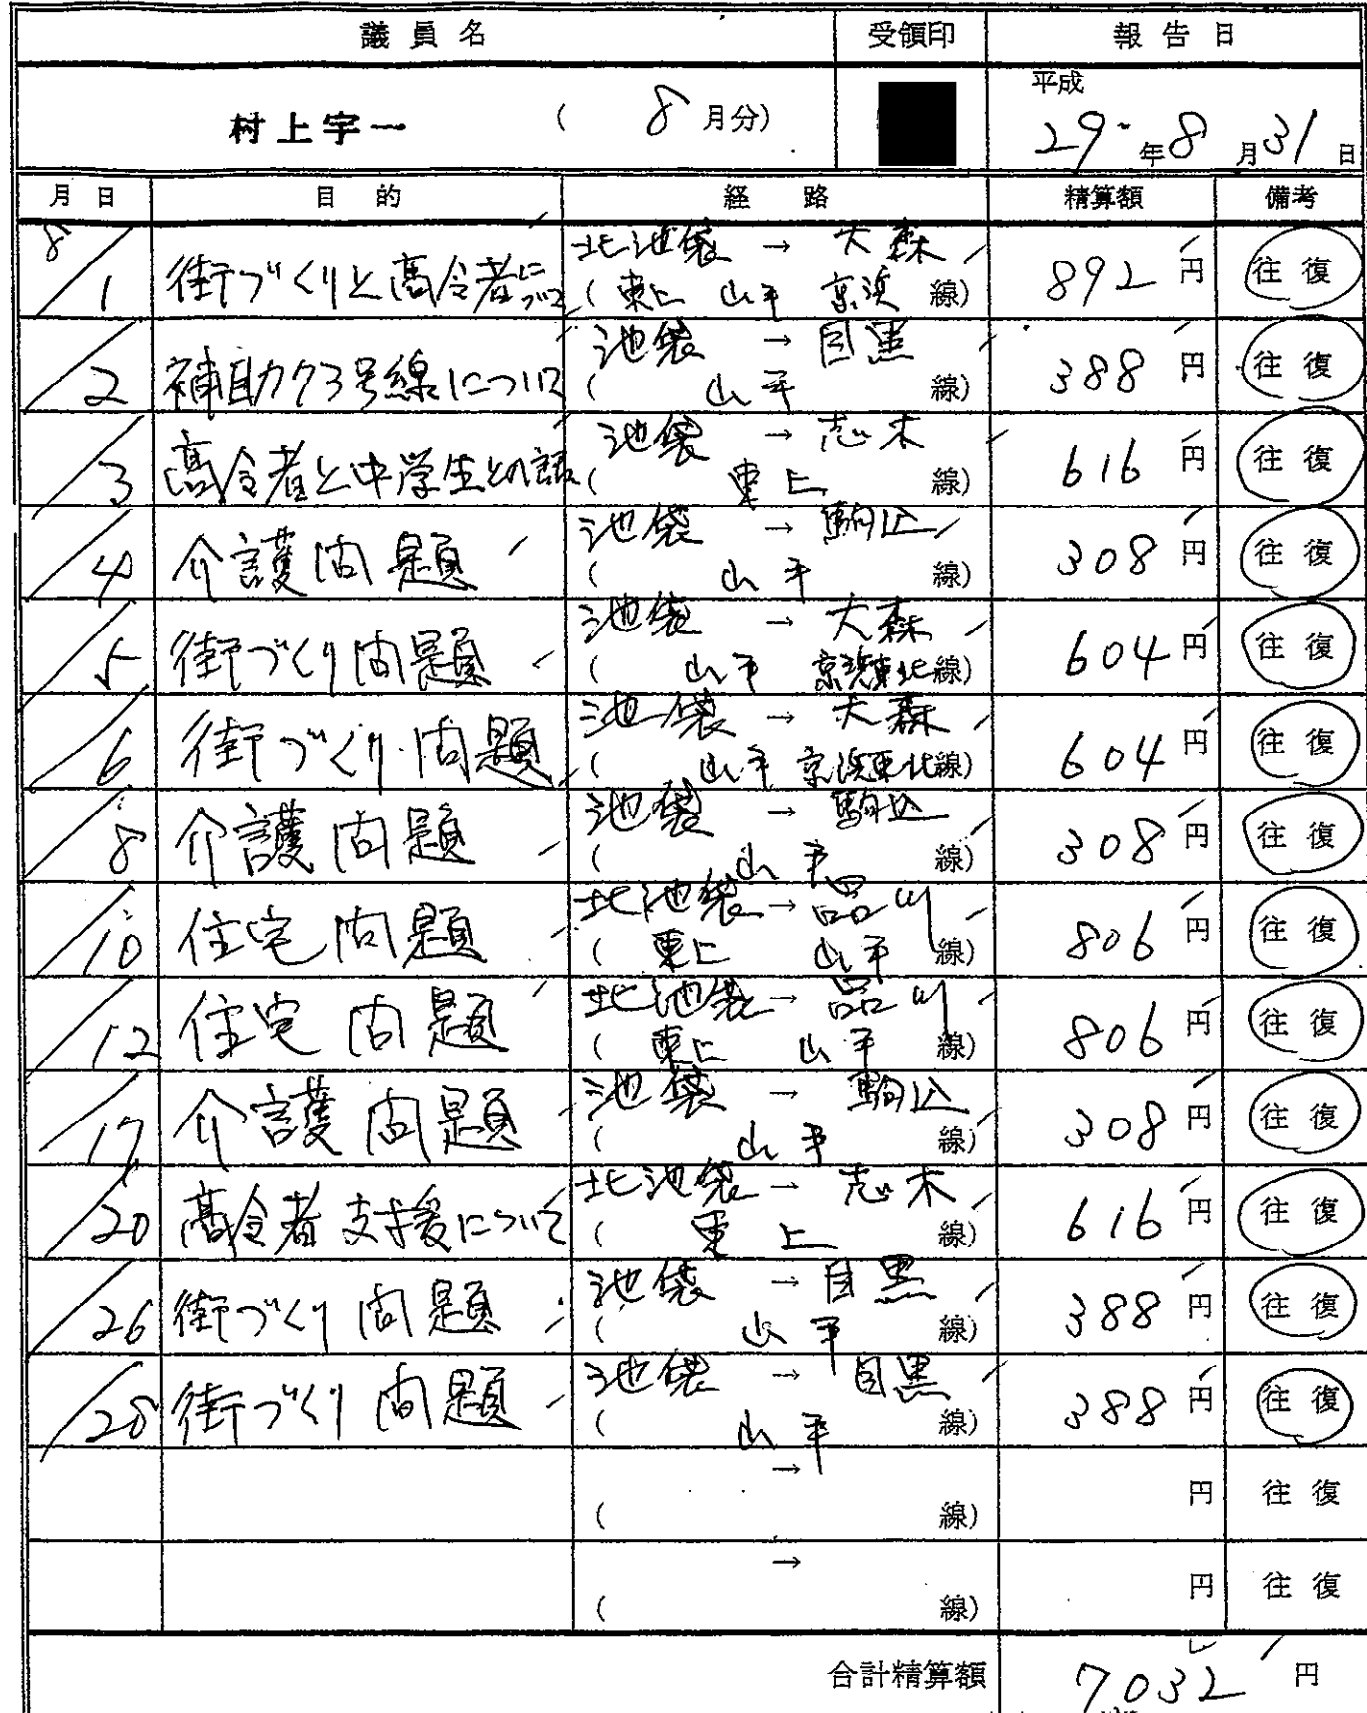 議員名 受領印 報告日
村上宇一 ( 8月分) 平成 29年8月31日
月日 目的 経路 精算額 備考
8/1 街づくりと高令者について 北池袋 → 大森 (東上 山手 京浜 線) 892円 往復
/2 補助73号線について 池袋 → 目黒 (山手 線) 388円 往復
/3 高令者と中学生との話 池袋 → 志木 (東上 線) 616円 往復
/4 介護問題 池袋 → 駒込 (山手 線) 308円 往復
/5 街づくり問題 池袋 → 大森 (山手 京浜東北線) 604円 往復
/6 街づくり問題 池袋 → 大森 (山手 京浜東北線) 604円 往復
/8 介護問題 池袋 → 駒込 (山手 線) 308円 往復
/10 住宅問題 北池袋 → 品川 (東上 山手 線) 806円 往復
/12 住宅問題 北池袋 → 品川 (東上 山手 線) 806円 往復
/17 介護問題 池袋 → 駒込 (山手 線) 308円 往復
/20 高令者支援について 北池袋 → 志木 (東上 線) 616円 往復
/26 街づくり問題 池袋 → 目黒 (山手 線) 388円 往復
/28 街づくり問題 池袋 → 目黒 (山手 線) 388円 往復
→ ( 線) 円 往復
→ ( 線) 円 往復
合計精算額 7,032円